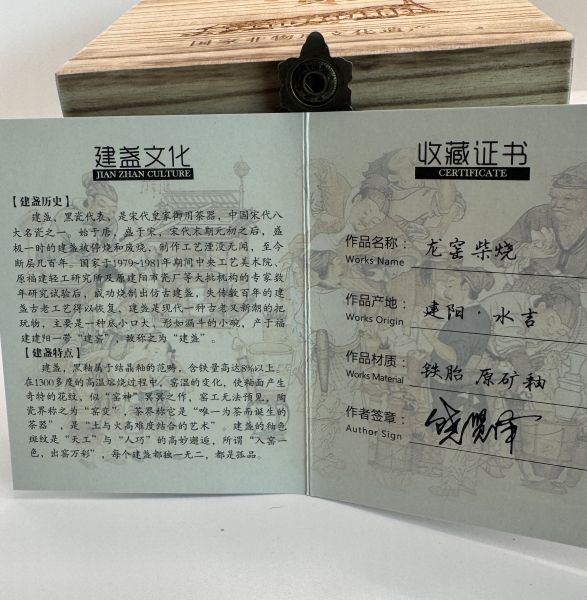 国家非物质文化遗产
建盏文化
JIAN ZHAN CULTURE
【建盏历史】
建盏，黑瓷代表，是宋代皇家御用茶器，中国宋代八
大名瓷之一。始于唐，盛于宋，宋代末期元初之后，盛
极一时的建盏被停烧和废烧，制作工艺湮没无闻，至今
断层几百年。国家于1979~1981年期间中央工艺美术院、
原福建轻工研究所及原建阳市瓷厂等大批机构的专家数
年研究试验后，成功烧制出仿古建盏，失传数百年的建
盏古老工艺得以恢复，建盏是现代一种古老又新潮的把
玩物，主要是一种底小口大，形如漏斗的小碗，产于福
建建阳一带“建窑”，故称之为“建盏”。
【建盏特点】
建盏，黑釉属于结晶釉的范畴，含铁量高达8%以上，
在1300多度的高温熔烧过程中，窑温的变化，使釉面产生
奇特的花纹，似“窑神”冥冥之作，窑工无法预见，陶
瓷界称之为“窑变”，茶界称它是“唯一为茶而诞生的
茶器”，是“土与火高难度结合的艺术”。建盏的釉色
斑纹是“天工”与“人巧”的高妙邂逅，所谓“入窑一
色，出窑万彩”，每个建盏都独一无二，都是孤品。
收藏证书
CERTIFICATE
作品名称： 龙窑柴烧
Works Name
作品产地： 建阳·水吉
Works Origin
作品材质： 铁胎 原矿釉
Works Material
作者签章：
Author Sign